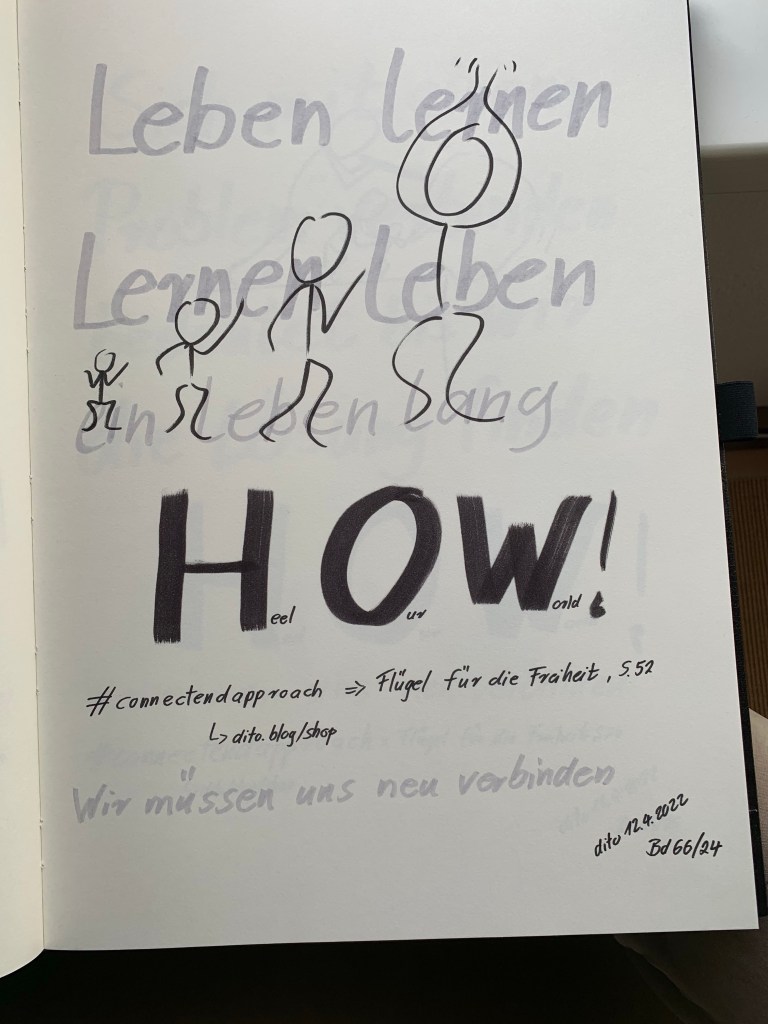 Leben lernen
Lernen Leben
ein Leben lang
Heel Our World!
#connectendapproach => Flügel für die Freiheit, S.52
↳ dito.blog/shop
Wir müssen uns neu verbinden
dito 12.4.2022
Bd 66/24